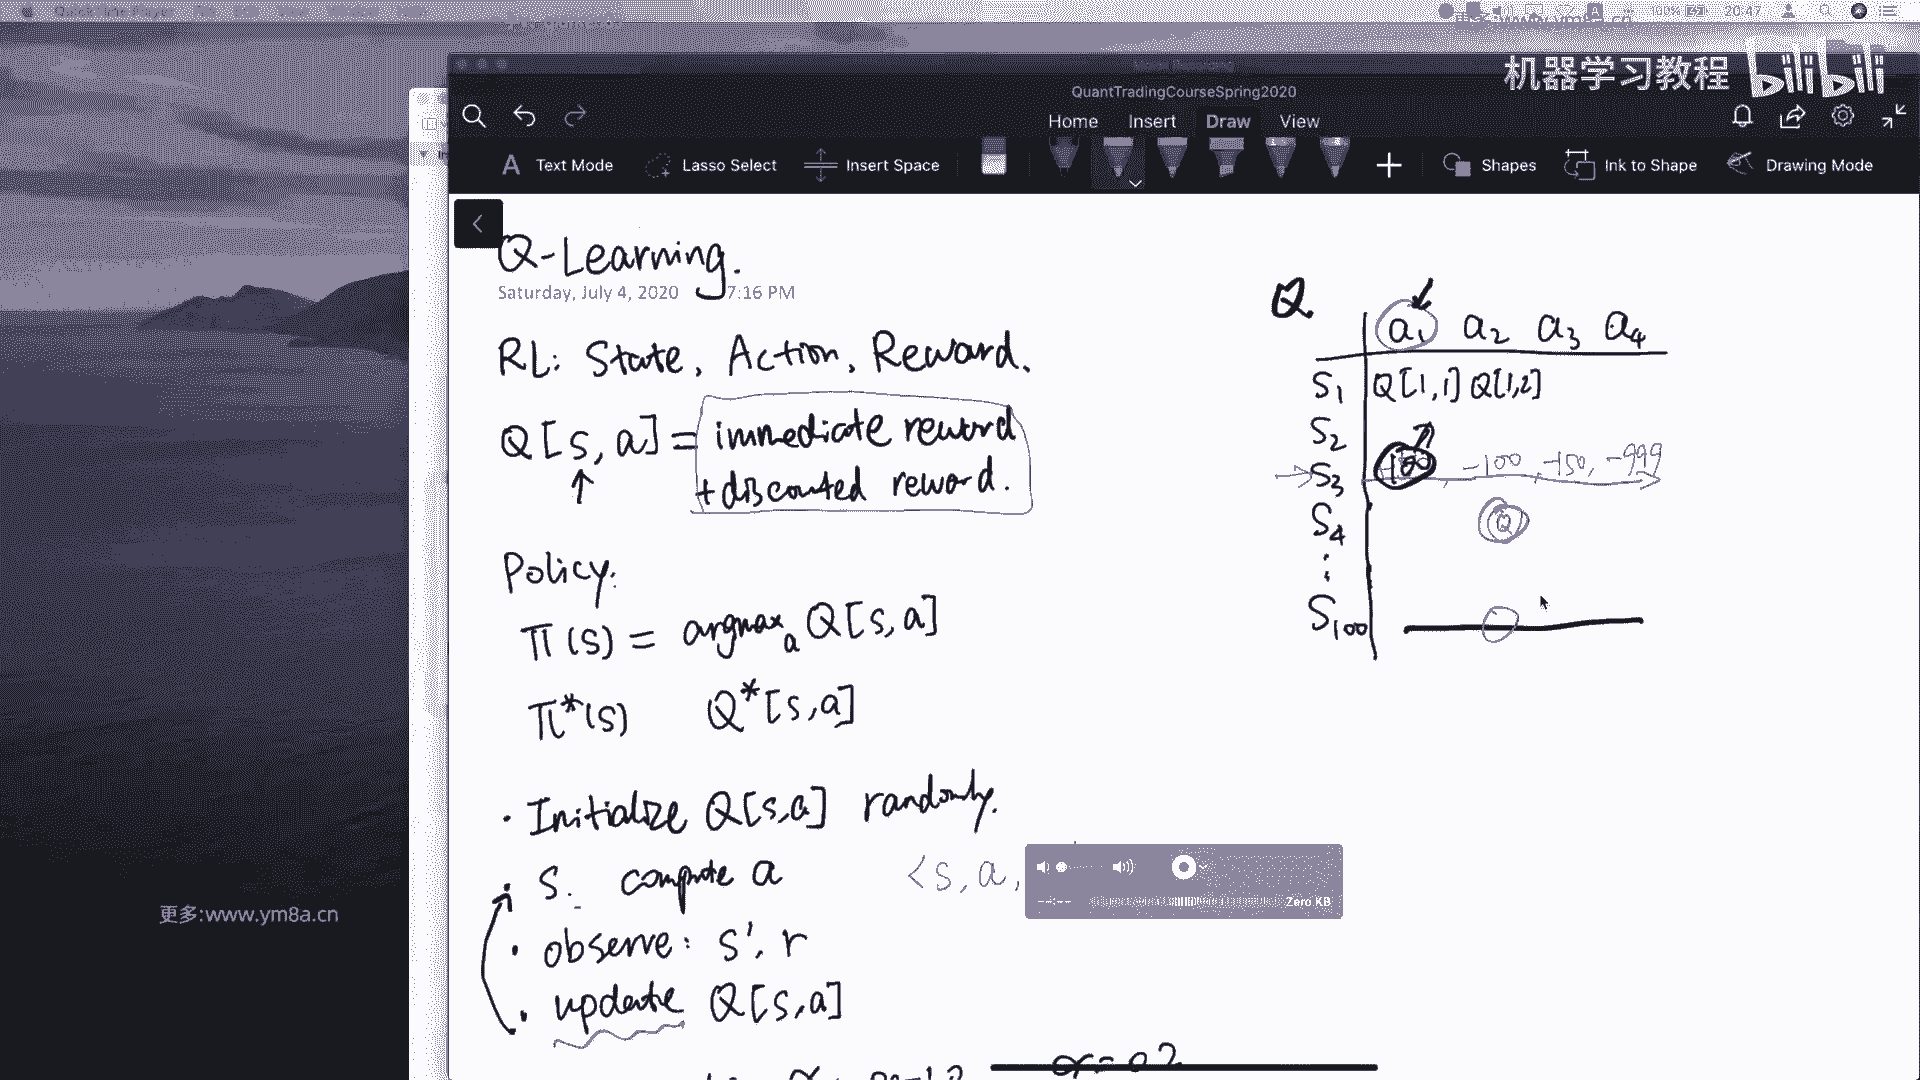 100% 20:47
机器学习教程 bilibili
QuantTradingCourseSpring2020
Home Insert Draw View
Text Mode Lasso Select Insert Space Shapes Ink to Shape Drawing Mode
Q-Learning.
Saturday, July 4, 2020 7:16 PM
RL: State, Action, Reward.
Q[s,a] = immediate reward
+discounted reward.
Policy:
π(s) = argmax_a Q[s,a]
π*(s) Q*[s,a]
· Initialize Q[s,a] randomly.
· s. compute a <s, a,
· observe: s', r
· update Q[s,a]
Q
a₁ a₂ a₃ a₄
S₁ Q[1,1] Q[1,2]
S₂
S₃ 100, -100, -150, -999
S₄ Q
⋮
S₁₀₀
Zero KB
更多:www.ym8a.cn